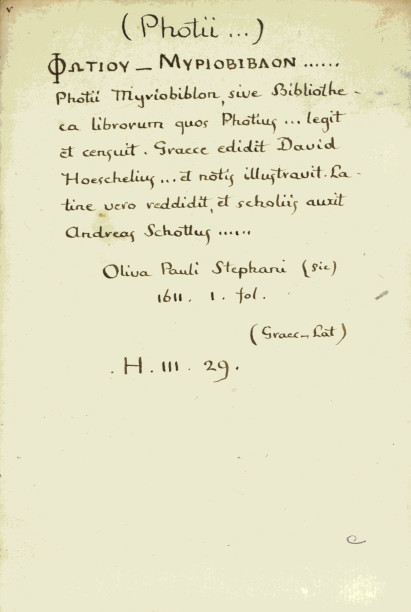 (Photii ...)
ΦΩΤΙΟΥ _ ΜΥΡΙΟΒΙΒΛΟΝ ......
Photii Myriobiblon, sive Bibliothe-
ca librorum quos Photius ... legit
et censuit. Graece edidit David
Hoeschelius ... et notis illustravit. La-
tine vero reddidit, et scholiis auxit
Andreas Schottus ......
Oliva Pauli Stephani (sic)
1611. 1. fol.
(Graec_Lat)
.H.III.29.